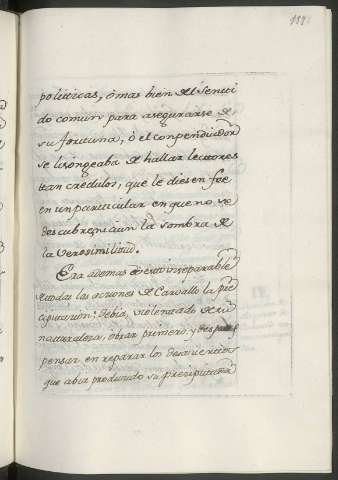 politicas, ó mas bien del senti
do comun para asegurarse de
su fortuna, ó el conpendiador
se lisongeaba de hallar lectores
tan credulos, que le diesen fee
en un particular en que no se
descubre ni aun la sombra de
la verosimilitud.
Era ademas inseparable
todas las acciones de Carvallo la pre
cipitacion: Debia, violentado de su
naturaleza, obrar primero, y despues
pensar en reparar los
que abia produzido su